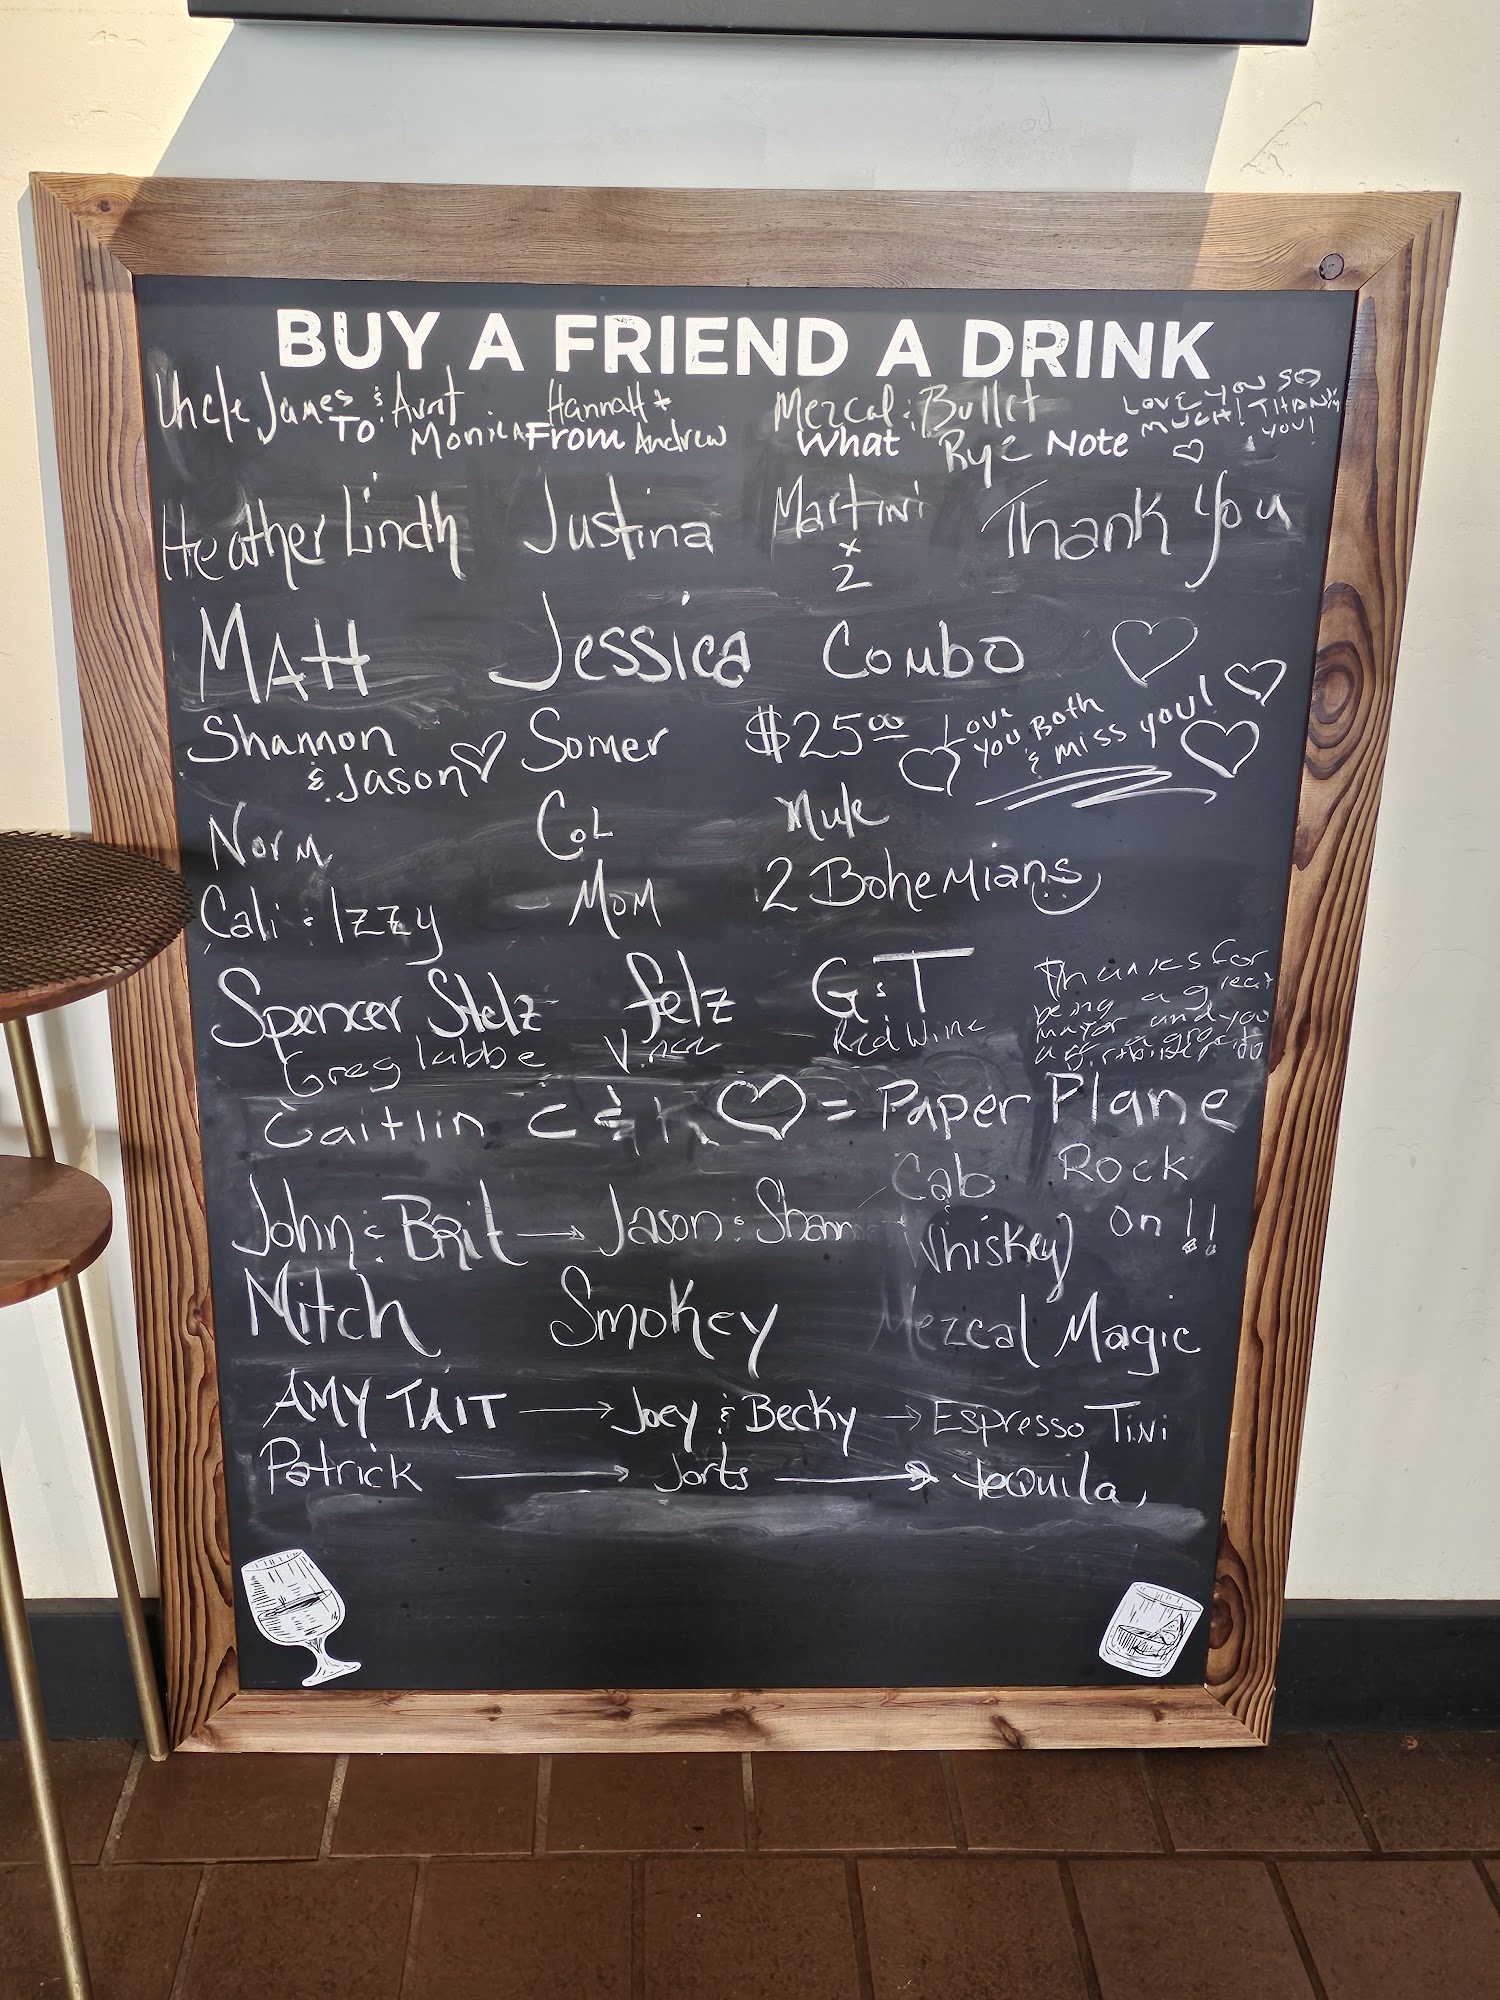 BUY A FRIEND A DRINK
Uncle James & Aunt Monica Hannah + Andrew Mezcal & Bullet Rye LOVE YOU SO MUCH! THANK YOU!
TO From What Note
Heather Lindh Justina Martini x 2 Thank You
Matt Jessica Combo
Shannon & Jason Somer $25.00 Love you Both & miss you!
Norm Col Mule
Cali & Izzy Mom 2 Bohemians
Spencer Stelz felz G & T Thanks for being a great mayor and you
Greg labbe Red Wine
Caitlin C & = Paper Plane
John & Brit → Jason & Shann Cab Whiskey Rock on!!
Mitch Smokey Mezcal Magic
AMY TAIT → Joey & Becky → Espresso Tini
Patrick → Jorts → tequila,